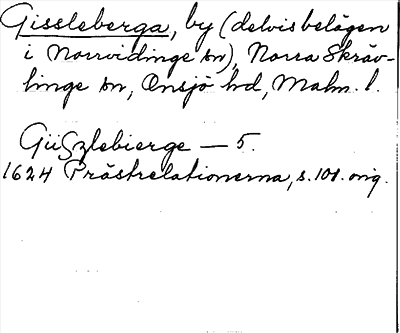 Gissleberga, by (delvis belägen
i Norrvidinge sn), Norra Skräv-
linge sn, Onsjö hd, Malm. l.
Güszlebierge — 5.
1624 Prästrelationerna, s. 101. orig.